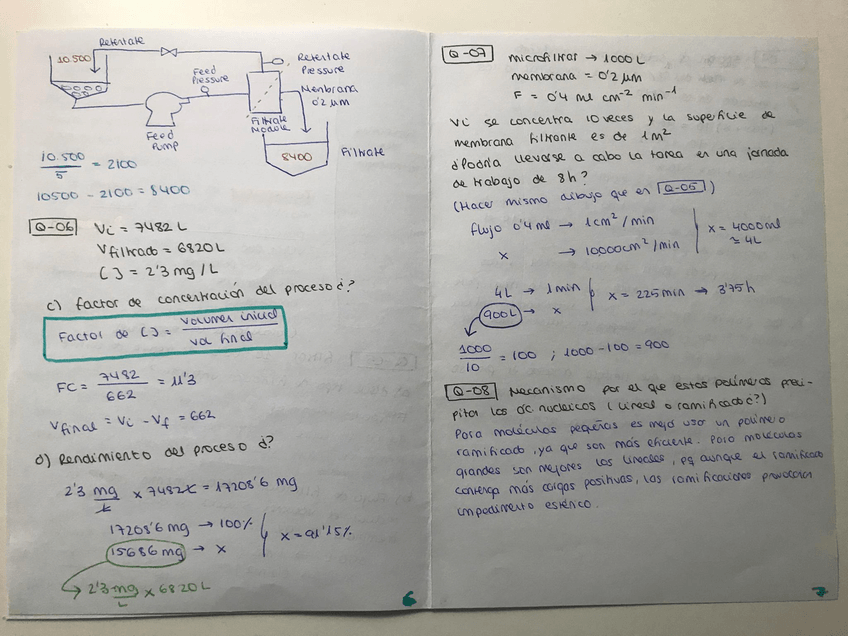 Retentate
10.500
Feed
Pressure
Retentate
Pressure
Membrana
0'2 µm
Feed
Pump
Filtrate
Module
8400
Filtrate
10.500 / 5 = 2100
10500 - 2100 = 8400
Q-06
Vi = 7482 L
Vfiltrado = 6820 L
[ ] = 2'3 mg/L
c) Factor de concentración del proceso ¿?
Factor de [ ] = volumen inicial / vol final
FC = 7482 / 662 = 11'3
Vfinal = Vi - Vf = 662
d) Rendimiento del proceso ¿?
2'3 mg/L x 7482 L = 17208'6 mg
17208'6 mg → 100%
15686 mg → x
x = 91'15%
2'3 mg/L x 6820 L
6
Q-07
microfiltrar → 1000 L
membrana = 0'2 µm
F = 0'4 ml cm⁻² min⁻¹
Vi se concentra 10 veces y la superficie de
membrana filtrante es de 1m²
¿Podría llevarse a cabo la tarea en una jornada
de trabajo de 8h?
(Hacer mismo dibujo que en Q-05)
Flujo 0'4 ml → 1cm²/min
x → 10000cm²/min
x = 4000ml
≃ 4L
4L → 1min
900L → x
x = 225min → 3'75h
1000 / 10 = 100 ; 1000 - 100 = 900
Q-08 Mecanismo por el que estos polímeros preci-
pitan los ác nucleicos (lineal o ramificado ¿?)
Para moléculas pequeñas es mejor usar un polímero
ramificado, ya que son más eficiente. Para moléculas
grandes son mejores los lineales, pq aunque el ramificado
contenga más cargas positivas, las ramificaciones provocan
impedimento estérico.
7